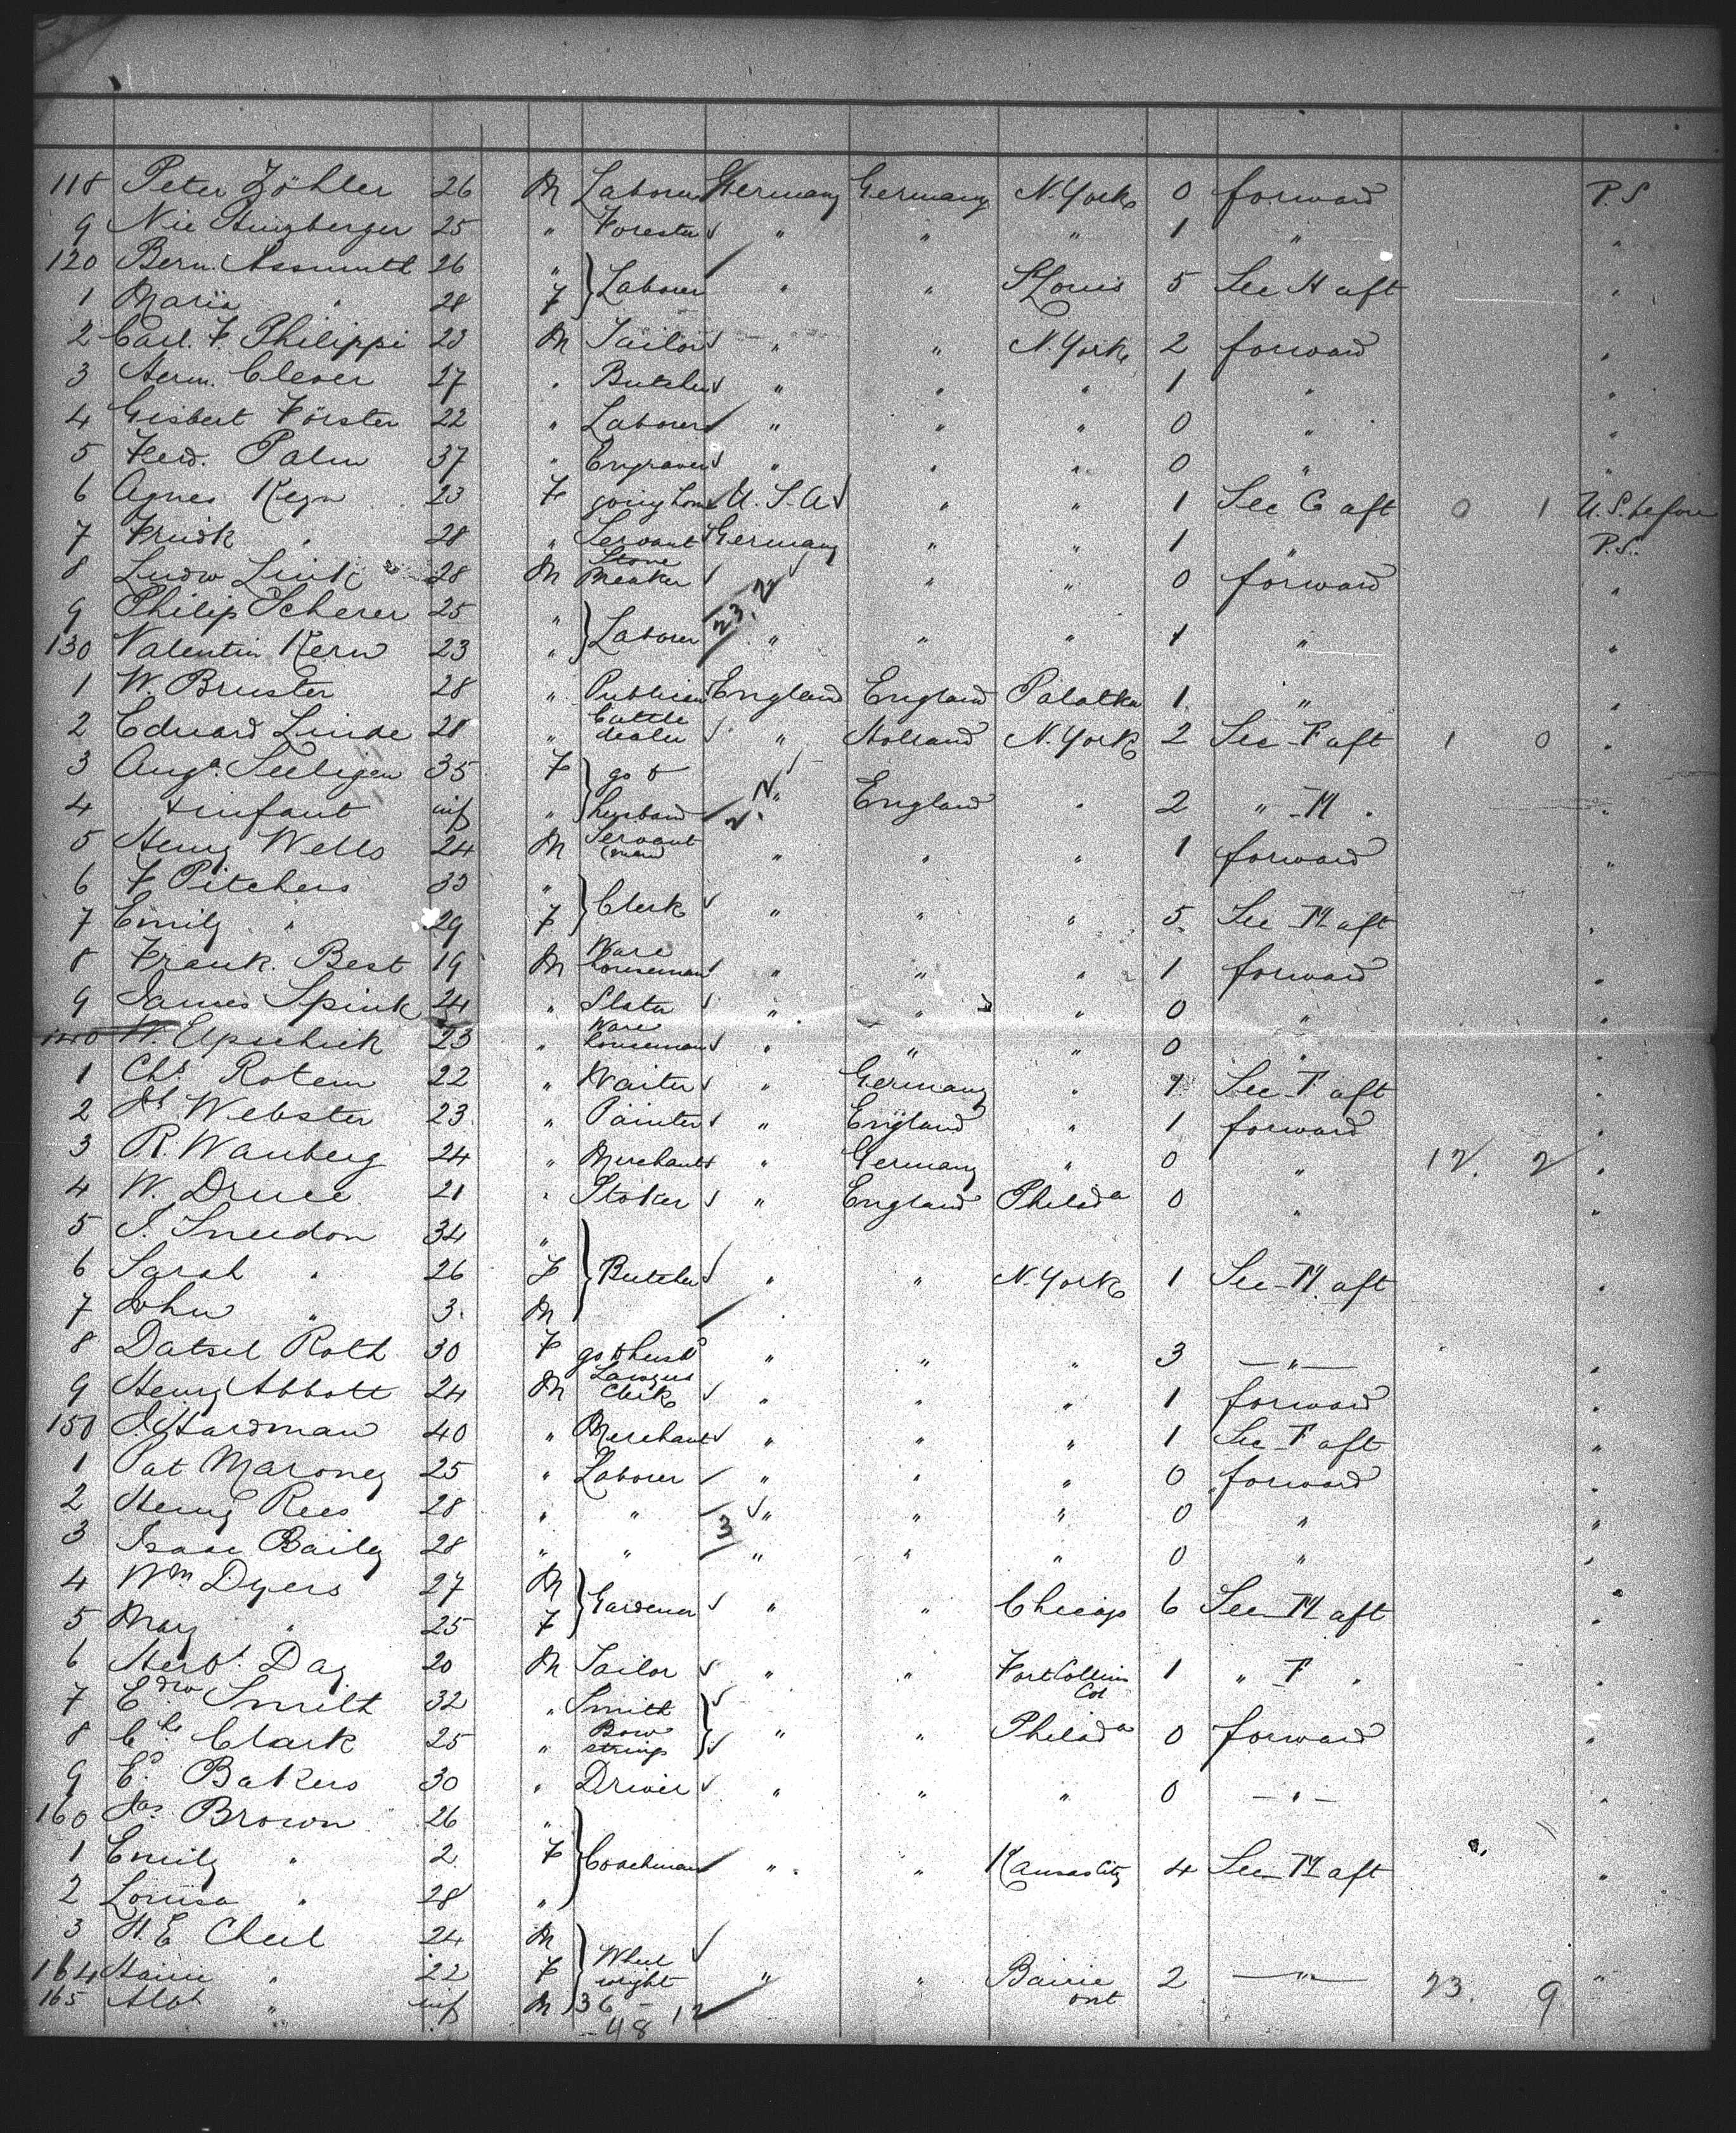 118 Peter Zöhler 26 M Laborer Germany Germany N. York 0 forward P.S
9 Nic Hinzberger 25 " Forester " " " 1 " "
120 Bern. Assmuth 26 " } Laborer " " St Louis 5 See H aft "
1 Marie " 28 F
2 Carl. F. Philippi 23 M Tailor " " N. York 2 forward "
3 Herm. Clever 27 " Butcher " " " 1 " "
4 Gisbert Förster 22 " Laborer " " " 0 " "
5 Ferd. Palm 37 " Engraver " " " 0 " "
6 Agnes Kegn 23 F going home U. S. A " " 1 See C aft 0 1 U.S. before
7 " 28 " Servant Germany " " 1 " P.S.
8 Ludw Link 28 M Stone Breaker " " 0 forward "
9 Philip Scherer 25 " } Laborer 23. " " " 1 " "
130 Valentin Kern 23 "
1 W. Bruster 28 " Publican England England Palatka 1 " "
2 Eduard Linde 28 " Cattle dealer " Holland N. York 2 See F aft 1 0 "
3 Auga. Seeligen 35 F } go to husband 2. " England " 2 " M " "
4 + infant inf "
5 Henry Wells 24 M Servant (man) " " " 1 forward "
6 F Pitchers 33 " } Clerk " " " 5 See M aft "
7 Emily " 29 F
8 Frank. Best 19 M Ware houseman " " " 1 forward "
9 James Spink 24 " Slater " " " 0 " "
140 W. 23 " Ware houseman " " " 0 " "
1 Chs Rotem 22 " Waiter " Germany " 1 See F aft "
2 Webster 23 " Painter " England " 1 forward "
3 R. Wanberg 24 " Merchant " Germany " 0 " 12. 2 "
4 W. Druce 21 " Stoker " England Philada 0 " "
5 J. Sneedon 34 " } Butcher " " N. York 1 See M. aft "
6 Sarah " 26 F
7 John " 3. M
8 Datsel Roth 30 F go to husbd " " " 3 — " — "
9 Henry Abbott 24 M Lawyers Clerk " " " 1 forward "
150 J. Hardman 40 " Merchant " " " 1 See F aft "
1 Pat Maroney 25 " Laborer " " " 0 forward "
2 Henry Rees 28 " " " " " 0 " "
3 Isaac Baily 28 " " 3 " " " 0 " "
4 Wm Dyers 27 M } Gardener " " Chicago 6 See M aft "
5 Mary " 25 F
6 Herbt. Day 20 M Tailor " " Fort Collins Col 1 " F " "
7 Edw Smith 32 " Smith } " " Philada 0 forward "
8 Chs Clark 25 " Bow strings
9 Ed. Bakers 30 " Driver " " " 0 — " — "
160 Jas Brown 26 " } Coachman " " Kansas City 4 See M aft "
1 Emily " 2 F
2 Louisa " 28 "
3 H. E Cheel 24 M } Wheel wright " " Barrie ont 2 — " — 23. 9 "
164 " 22 F
165 Albt " inf M 36 - 12
- 48